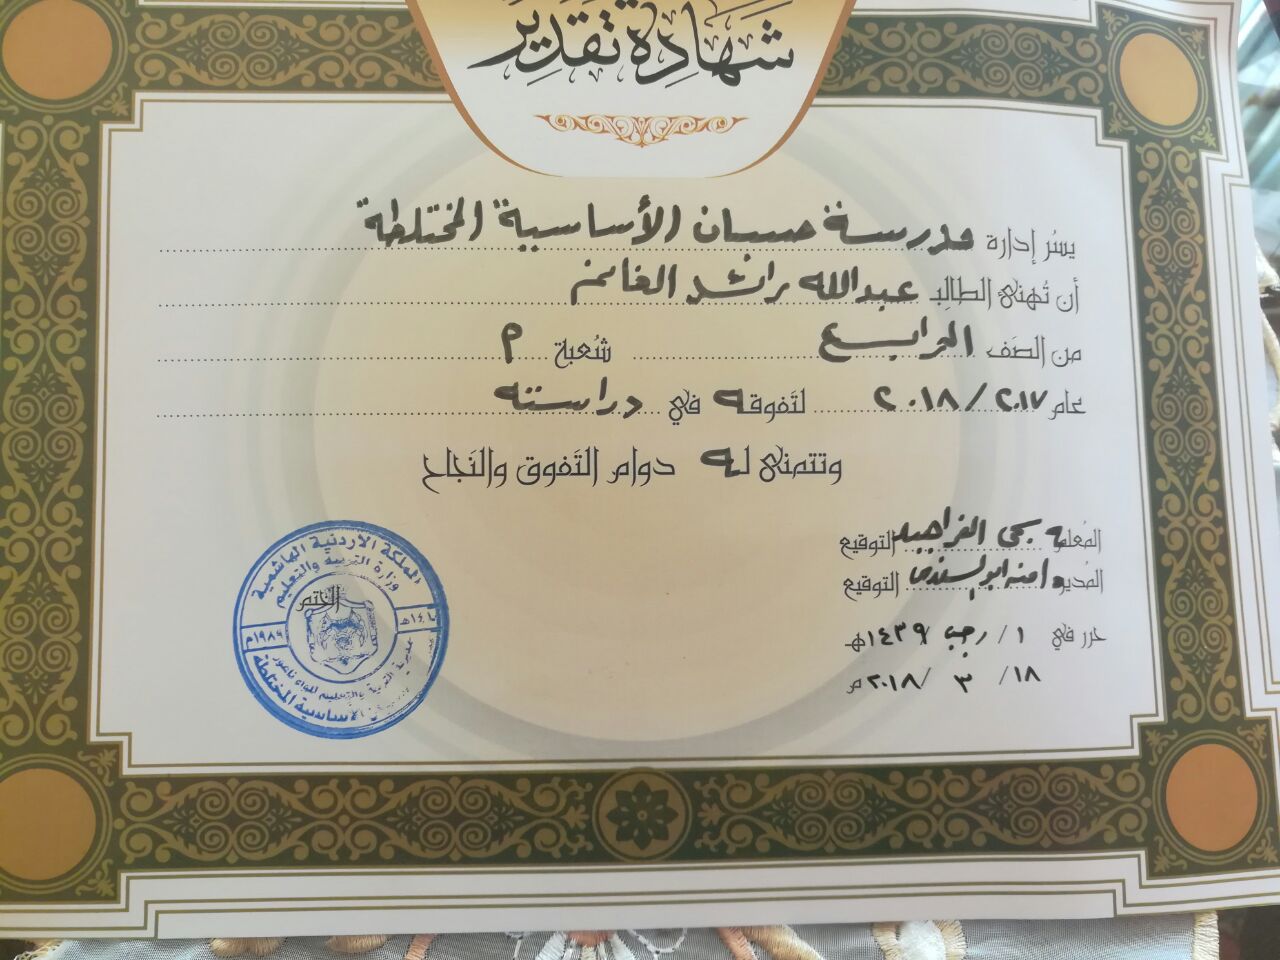 شهادة تقدير
يسُر إدارة مدرسة حسبان الأساسية المختلطة
أن تُهنى الطالِب عبدالله راشد الغانم
من الصَف الرابع شُعبة م
عام ٢٠١٧/٢٠١٨ لتَفوقه في دراسته
وتتمنى له دوام التَفوق والنَجاح
المُعلمه التوقيع
المُديره امنه ابو التوقيع
حرر في ١ / رجب / ١٤٣٩هـ
١٨ / ٣ / ٢٠١٨م
المملكة الاردنية الهاشمية
وزارة التربية والتعليم
الختم
١٩٨٩م
مديرية التربية والتعليم للواء ناعور
الاساسية المختلطة